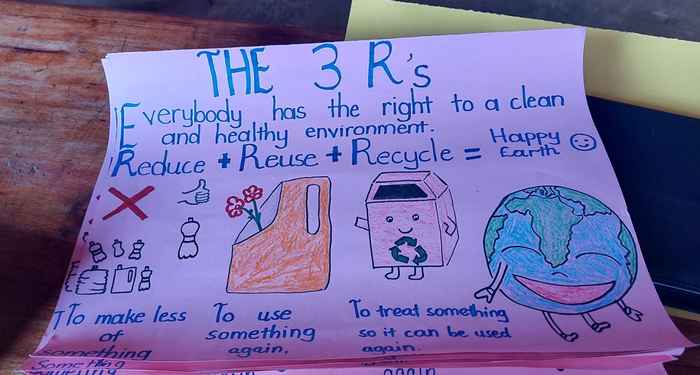 THE 3 R's
Everybody has the right to a clean
and healthy environment.
Reduce + Reuse + Recycle = Happy Earth
To make less
of
something
To use
something
again,
To treat something
so it can be used
again.
Something
again